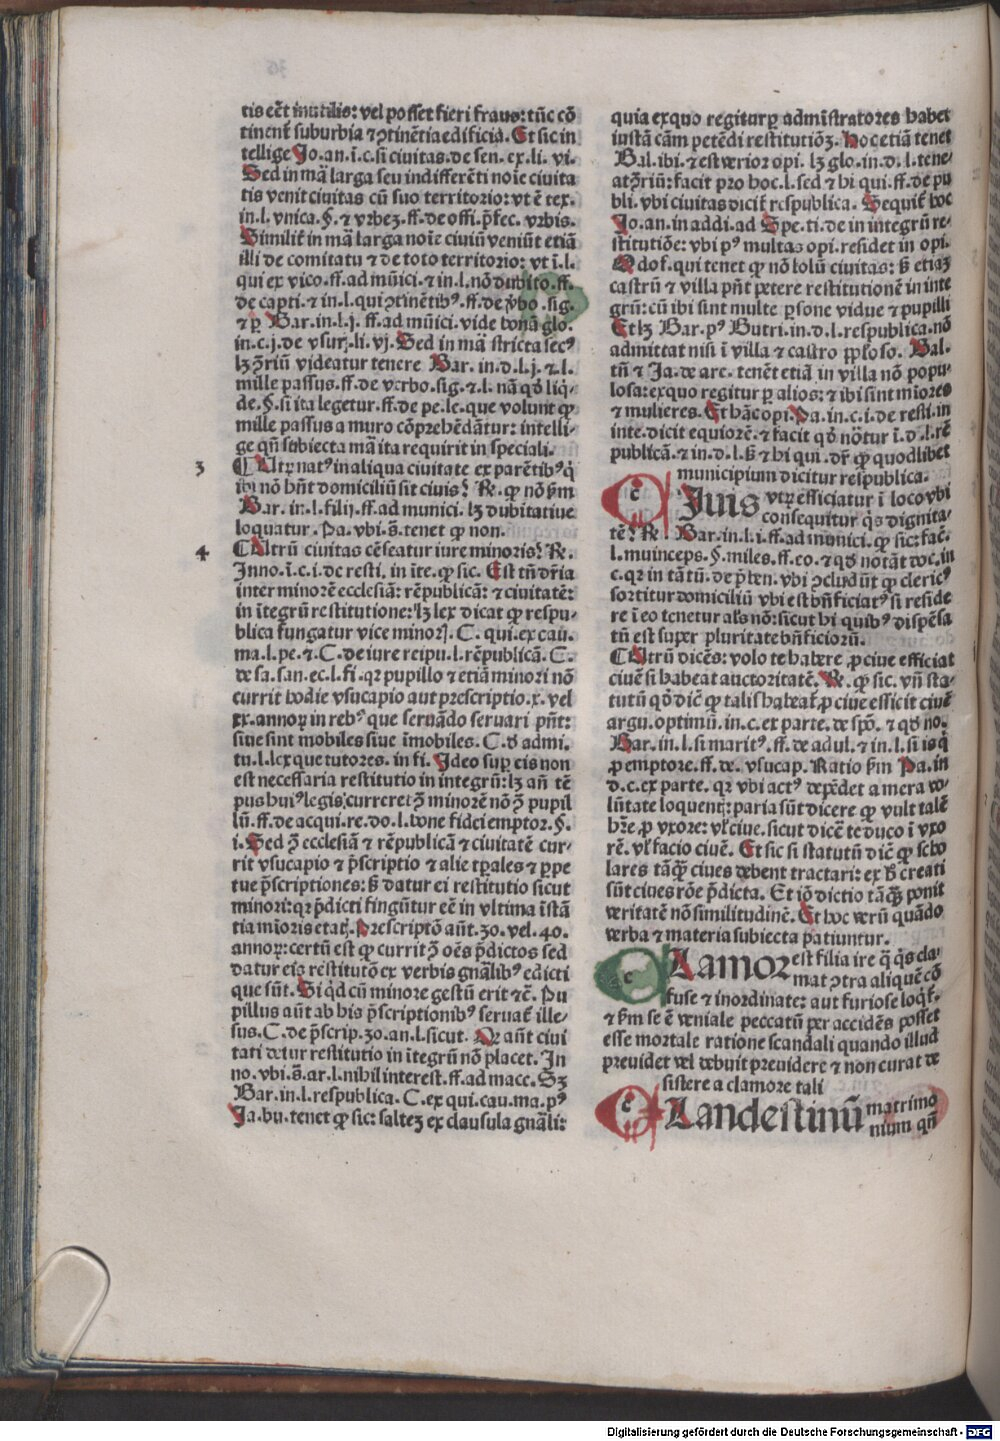 tis eēt inutilis: vel posset fieri fraus: tūc cō
tinent̄ suburbia ⁊ ꝯtinētia edificia. Et sic in
tellige Jo. an. ī. c. si civitas. de sen. ex. li. vi.
Sed in mā larga seu indifferēti noīe ciuita
tis venit ciuitas cū suo territorio: vt ē tex.
in. l. vnica. §. ⁊ vrbeꝫ. ff. de offi. p̄fec. vrbis.
Similit̄ in mā larga noīe ciuiū veniūt etiā
illi de comitatu ⁊ de toto territorio: vt ī. l.
qui ex vico. ff. ad mūici. ⁊ in. l. nō dubito. ff.
de capti. ⁊ in. l. qui ꝯtinētibꝰ. ff. de v̄bo. sig.
⁊ ꝑ Bar. in. l. j. ff. ad mūici. vide bonā glo.
in. c. j. de vsurj. li. vj. Sed in mā stricta secꝰ
lꝫ ꝯ̄riū videatur tenere Bar. in. d. l. j. ⁊. l.
mille passus. ff. de verbo. sig. ⁊. l. nā qd̄ liq̄-
de. §. si ita legetur. ff. de pe. le. que volunt ꝙ
mille passus a muro cōprehēdātur: intelli-
ge qn̄ subiecta mā ita requirit in speciali.
3 ¶ Utꝝ natꝰ in aliqua ciuitate ex parētibꝰ q̄
ibi nō hn̄t domiciliū sit ciuis? R̄. ꝙ nō ẜm
Bar. in. l. filij. ff. ad munici. lꝫ dubitatiue
loquatur. Pa. vbi. s̄. tenet ꝙ non.
4 ¶ Utrū ciuitas cēseatur iure minoris? R̄.
Inno. ī. c. i. de resti. in īte. ꝙ sic. Est tn̄ dr̄ia
inter minorē ecclesiā: rēpublicā: ⁊ ciuitatē:
in ītegrū restitutione: lꝫ lex dicat ꝙ respu-
blica fungatur vice minorꝭ. C. qui. ex cau.
ma. l. pe. ⁊. C. de iure reipu. l. rēpublicā. C.
de sa. san. ec. l. fi. qꝛ pupillo ⁊ etiā minori nō
currit hodie vsucapio aut prescriptio. x. vel
xx. annoꝝ in rebꝰ que seruādo seruari pn̄t:
siue sint mobiles siue īmobiles. C. d̄ admi.
tu. l. lex que tutores. in fi. Ideo suꝑ eis non
est necessaria restitutio in integrū: lꝫ an̄ tē
pus huiꝰ legis; curreret ꝯ̄ minorē nō ꝯ̄ pupil
lū. ff. de acqui. re. do. l. bone fidei emptor. §.
i. Sed ꝯ̄ ecclesiā ⁊ rēpublicā ⁊ ciuitatē cur-
rit vsucapio ⁊ p̄scriptio ⁊ alie tꝑales ⁊ ꝑpe
tue p̄scriptiones: s̄ datur ei restitutio sicut
minori: qꝛ p̄dicti fingūtur eē in vltima īstā
tia mīoris etatꝭ. Prescriptō aūt. 30. vel. 40.
annoꝝ: certū est ꝙ currit ꝯ̄ oēs p̄dictos sed
datur eis restitutō ex verbis gn̄alibꝰ edicti
que sūt. Si qd̄ cū minore gestū erit ⁊c̄. Pu
pillus aūt ab his p̄scriptionibꝰ seruat̄ ille-
sus. C. de p̄scrip. 30. an. l. sicut. Qꝛ aūt ciui
tati detur restitutio in ītegrū nō placet. In
no. vbi. s̄. ar. l. nihil interest. ff. ad mace. Sꝫ
Bar. in. l. respublica. C. ex qui. cau. ma. pꝰ
Ja. bu. tenet ꝙ sic: salteꝫ ex clausula gn̄ali:
quia exquo regitur ꝑ admīstratores habet
iustā cām petēdi restitutiōꝫ. hoc etiā tenet
Bal. ibi. ⁊ est verior opi. lꝫ glo. in. d. l. tene-
at ꝯ̄riū: facit pro hoc. l. sed ⁊ hi qui. ff. de pu
bli. vbi ciuitas dicit̄ respublica. Sequit̄ hoc
Jo. an. in addi. ad Spe. ti. de in integrū re-
stitutiōe: vbi pꝰ multas opi. residet in opi.
Odof. qui tenet ꝙ nō solū ciuitas: s̄ etiaꝫ
castrū ⁊ villa pn̄t petere restitutionē in inte
grū: cū ibi sunt multe ꝑsone vidue ⁊ pupilli
Et lꝫ Bar. pꝰ Butri. in. d. l. respublica. nō
admittat nisi ī villa ⁊ castro ppl̄oso. Bal.
tn̄ ⁊ Ja. de are. tenēt etiā in villa nō popu-
losa: exquo regitur ꝑ alios: ⁊ ibi sint mīores
⁊ mulieres. Et hāc opi. Pa. in. c. i. de resti. in
inte. dicit equiorē. ⁊ facit qd̄ nōtur ī. d. l. rē
publicā. ⁊ in. d. l. s̄ ⁊ hi qui. dr̄ ꝙ quodlibet
municipium dicitur respublica.
c Iuis vtꝝ efficiatur ī loco vbi
consequitur q̄s dignita-
tē? R̄. Bar. in. l. i. ff. ad munici. ꝙ sic: fac̄.
l. municeps. §. miles. ff. eo. ⁊ qd̄ notāt doc. in
c. qꝛ in tātū. de p̄ben. vbi ꝯcludūt ꝙ clericꝰ
sortitur domiciliū vbi est bn̄ficiatꝰ si reside
re ī eo tenetur al̄s nō: sicut hi quibꝰ dispēsa
tū est super pluritate bn̄ficiorū.
¶ Utrū dicēs: volo te habere ꝓ ciue efficiat
ciuē si habeat auctoritatē. R̄. ꝙ sic. vn̄ sta-
tutū qd̄ dic̄ ꝙ talis habeat̄ ꝓ ciue efficit ciuē
argu. optimū. in. c. ex parte. de spō. ⁊ qd̄ no.
Bar. in. l. si maritꝰ. ff. de adul. ⁊ in. l. si is q̄
ꝓ emptore. ff. de. vsucap. Ratio ẜm Pa. in
d. c. ex parte. qꝛ vbi actꝰ depēdet a mera vo-
lūtate loquentꝭ: paria sūt dicere ꝙ vult talē
hr̄e ꝓ vxore: vl̄ ciue. sicut dicē te duco ī vxo
rē. vl̄ facio ciuē. Et sic si statutū dic̄ ꝙ scho
lares tāꝙ̄ ciues debent tractari: ex h̄ creati
sūt ciues rōe p̄dicta. Et iō dictio tāꝙ̄ ponit
veritatē nō similitudinē. Et hoc verū quādo
verba ⁊ materia subiecta patiuntur.
c Lamoꝛ est filia ire q̄ q̄s cla-
mat ꝯtra aliquē cō
fuse ⁊ inordinate: aut furiose loq̄t̄.
⁊ ẜm se ē veniale peccatū per accidēs posset
esse mortale ratione scandali quando illud
preuidet vel debuit preuidere ⁊ non curat de
sistere a clamore tali
c Landestinū matrimo
nium qn̄
Digitalisierung gefördert durch die Deutsche Forschungsgemeinschaft - DFG